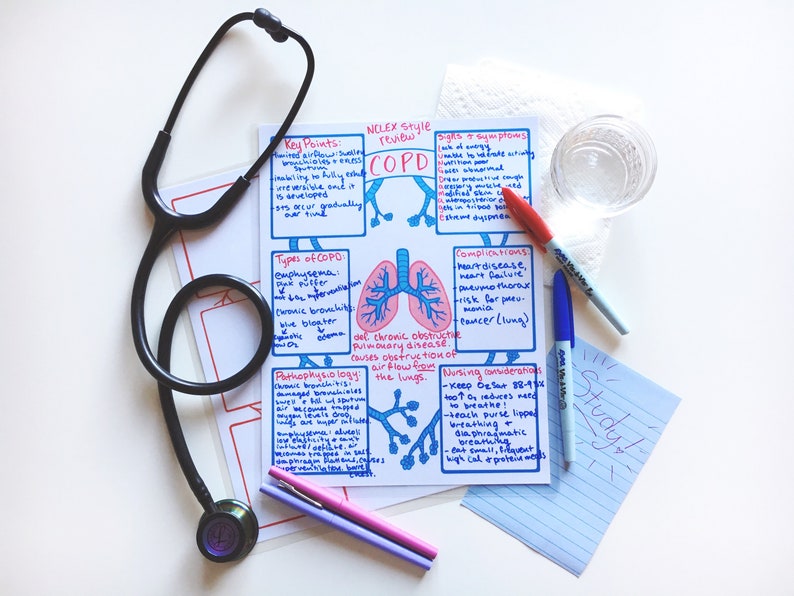 NCLEX style
review
COPD
Key Points:
- limited airflow: swollen
bronchioles + excess
sputum
- inability to fully exhale
- irreversible once it
is developed
- sts occur gradually
over time
Signs + symptoms:
Lack of energy
Unable to tolerate activity
Nutrition poor
Gases abnormal
Dry or productive cough
accessory muscle used
modified skin
anteroposterior
gets in tripod
extreme dyspnea
Types of COPD:
emphysema:
pink puffer
not ↓O2 hyperventilation
chronic bronchitis:
blue bloater
cyanotic edema
low O2
Complications:
- heart disease,
heart failure
- pneumothorax
- risk for pneu-
monia
- cancer (lung)
def. chronic obstructive
pulmonary disease.
causes obstruction of
airflow from
the lungs.
Pathophysiology:
chronic bronchitis:
damaged bronchioles
swell + fill w/ sputum
air becomes trapped
oxygen levels drop,
lungs are hyper inflated.
emphysema: alveoli
lose elasticity + can't
inflate/deflate. air
becomes trapped in sacs.
diaphragm flattens, causes
hyperventilation, barrel
chest.
Nursing considerations
- Keep O2 Sat 88-93%
too ↑ O2 reduces need
to breathe!
- teach purse lipped
breathing +
diaphragmatic
breathing
- eat small, frequent
high cal + protein meals
Study!